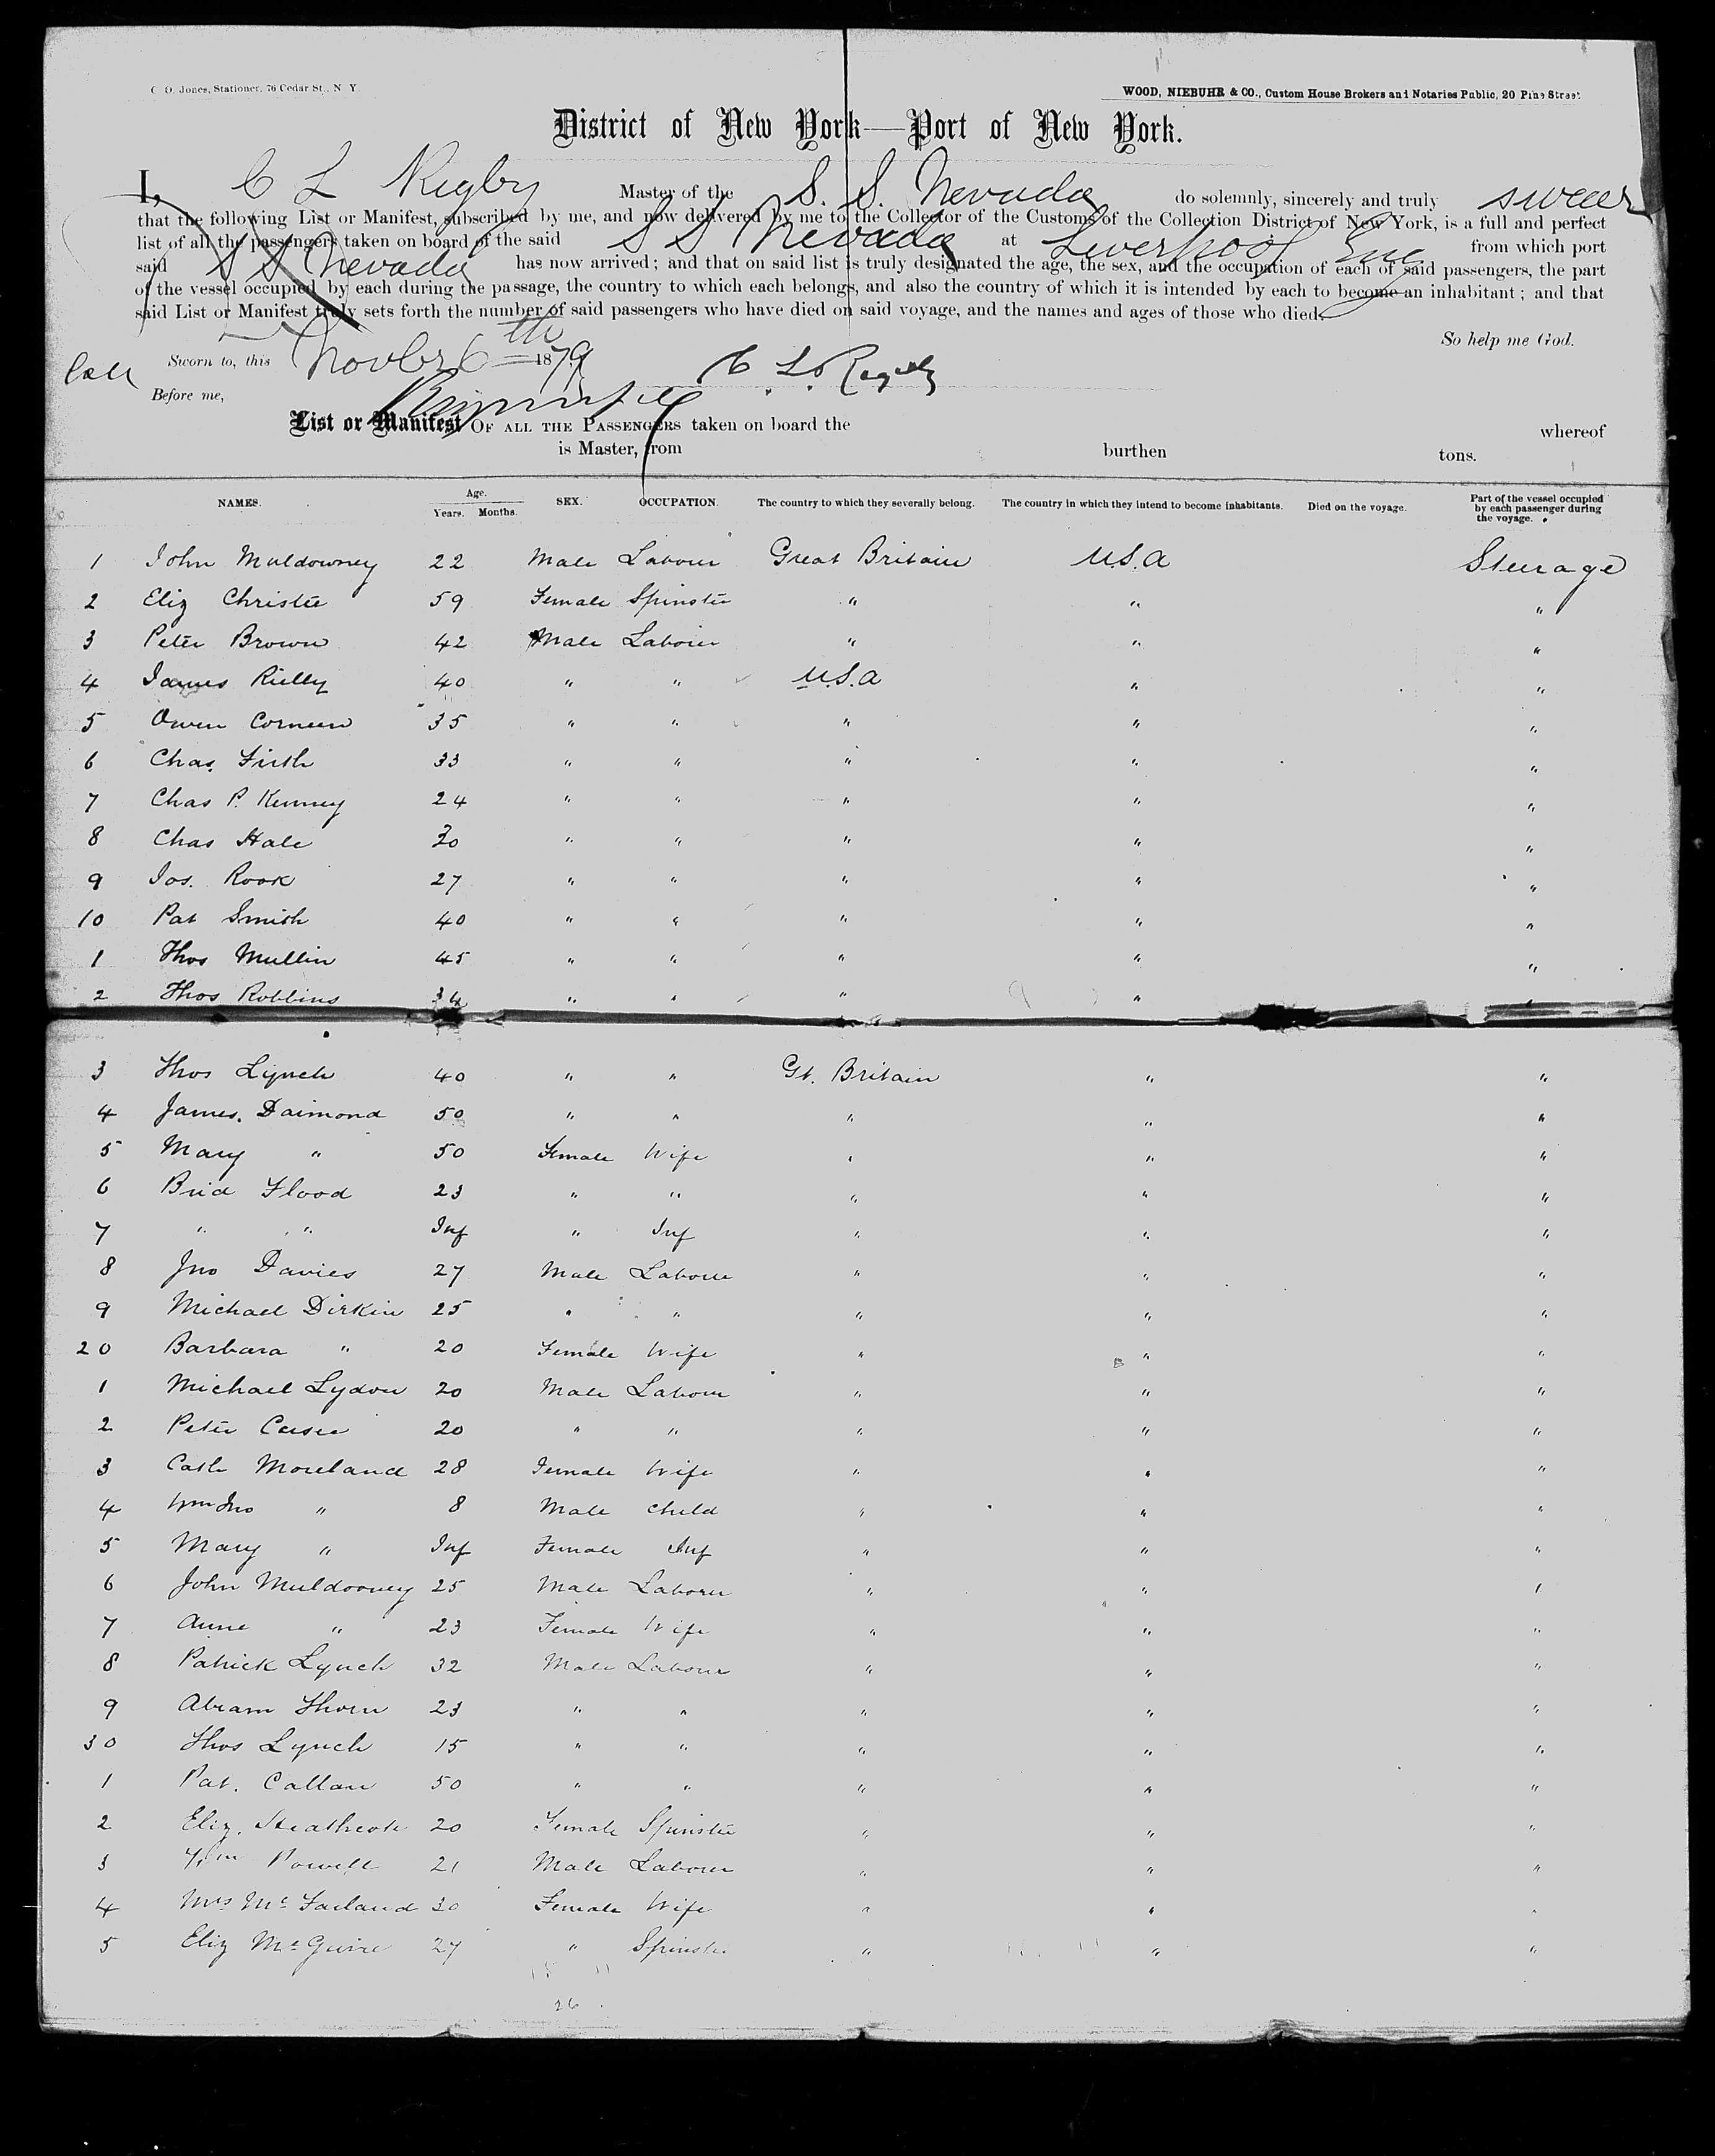 C. O. Jones, Stationer, 76 Cedar St., N. Y.
WOOD, NIEBUHR & CO., Custom House Brokers and Notaries Public, 20 Pine Street.
District of New York—Port of New York.
I, C L Rigby Master of the S. S. Nevada do solemnly, sincerely and truly swear
that the following List or Manifest, subscribed by me, and now delivered by me to the Collector of the Customs of the Collection District of New York, is a full and perfect
list of all the passengers taken on board of the said S S Nevada at Liverpool Eng from which port
said S S Nevada has now arrived; and that on said list is truly designated the age, the sex, and the occupation of each of said passengers, the part
of the vessel occupied by each during the passage, the country to which each belongs, and also the country of which it is intended by each to become an inhabitant; and that
said List or Manifest truly sets forth the number of said passengers who have died on said voyage, and the names and ages of those who died.
So help me God.
Sworn to, this Novbr 6th 1879 C. L. Rigby
Before me,
List or Manifest OF ALL THE PASSENGERS taken on board the whereof
is Master, from burthen tons.
NAMES. Age. Years. Months. SEX. OCCUPATION. The country to which they severally belong. The country in which they intend to become inhabitants. Died on the voyage. Part of the vessel occupied by each passenger during the voyage.
1 John Muldowney 22 Male Labour Great Britain U.S.a Steerage
2 Eliz Christie 59 Female Spinster " " "
3 Peter Brown 42 Male Labour " " "
4 James Rielly 40 " " U.S.a " "
5 Owen Corneen 35 " " " " "
6 Chas. Firth 33 " " " " "
7 Chas P. Kenney 24 " " " " "
8 Chas Hale 30 " " " " "
9 Jos. Rook 27 " " " " "
10 Pat Smith 40 " " " " "
1 Thos Mullin 45 " " " " "
2 Thos Robbins 34 " " " " "
3 Thos Lynch 40 " " Gt. Britain " "
4 James. Daimond 50 " " " " "
5 Mary " 50 Female Wife " " "
6 Brid Flood 23 " " " " "
7 " " Inf " Inf " " "
8 Jno Davies 27 Male Labour " " "
9 Michael Dirkin 25 " " " " "
20 Barbara " 20 Female Wife " " "
1 Michael Lydon 20 Male Labour " " "
2 Peter 20 " " " " "
3 Cath Moreland 28 Female Wife " " "
4 Wm Jno " 8 Male Child " " "
5 Mary " Inf Female Inf " " "
6 John Muldooney 25 Male Labour " " "
7 Anne " 23 Female Wife " " "
8 Patrick Lynch 32 Male Labour " " "
9 Abram Thorn 23 " " " " "
30 Thos Lynch 15 " " " " "
1 Pat. Callan 50 " " " " "
2 Eliz. Heathcote 20 Female Spinster " " "
3 Wm Powell 21 Male Labour " " "
4 Mrs Mc Farland 30 Female Wife " " "
5 Eliz McGuire 27 " Spinster " " "
15 11
26